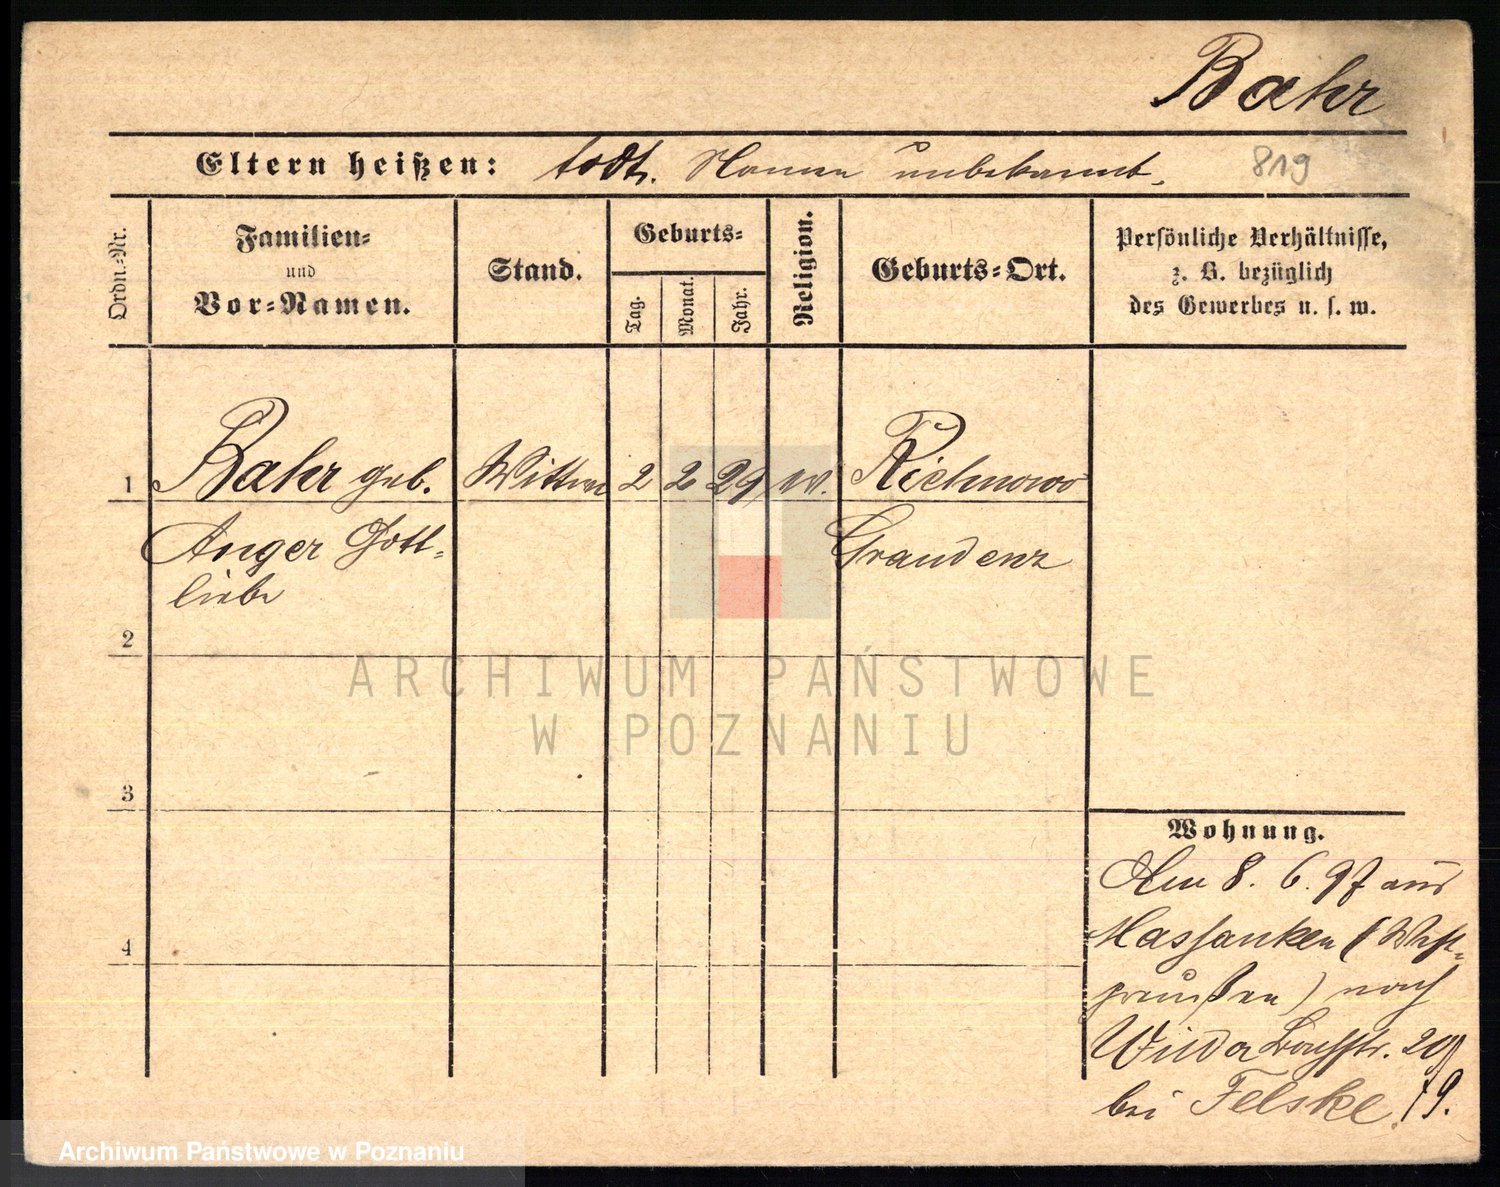 Bahr
Eltern heißen: todt. Namen unbekannt.
819
Ordn.-Nr.
Familien-
und
Vor-Namen.
Stand.
Geburts-
Tag.
Monat.
Jahr.
Religion.
Geburts-Ort.
Persönliche Verhältnisse,
z. B. bezüglich
des Gewerbes u. s. w.
1 Bahr geb. Wittwe 2 2 29 Richnowo
Anger Gott- Graudenz
liebe
2
3
4
Wohnung.
Am 8. 6. 97 aus
Massanken (West-
preußen) nach
Wilda 20
bei Felske. 19.
ARCHIWUM PAŃSTWOWE
W POZNANIU
Archiwum Państwowe w Poznaniu